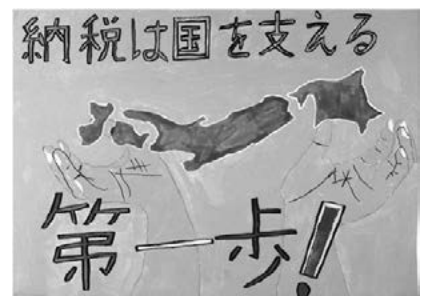 納税は国を支える
第一歩!